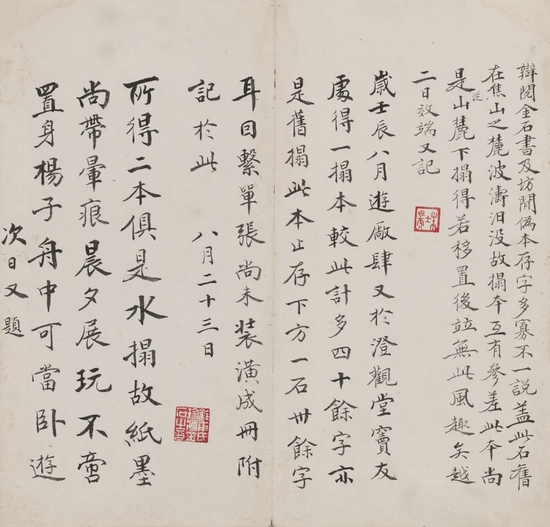 辯閱金石書及坊間偽本存字多寡不一說蓋此石舊
在焦山之麓波濤汩没故搨本互有參差此本尚
是從山麓下搨得若移置後竝無此風趣矣越
二日效端又記
歲壬辰八月遊廠肆又於澄觀堂竇友
處得一搨本較此計多四十餘字亦
是舊搨此本止存下方一石卅餘字
耳因繫單張尚未裝潢成冊附
記於此 八月二十三日
所得二本俱是水搨故紙墨
尚帶暈痕晨夕展玩不啻
置身楊子舟中可當卧遊
次日又題